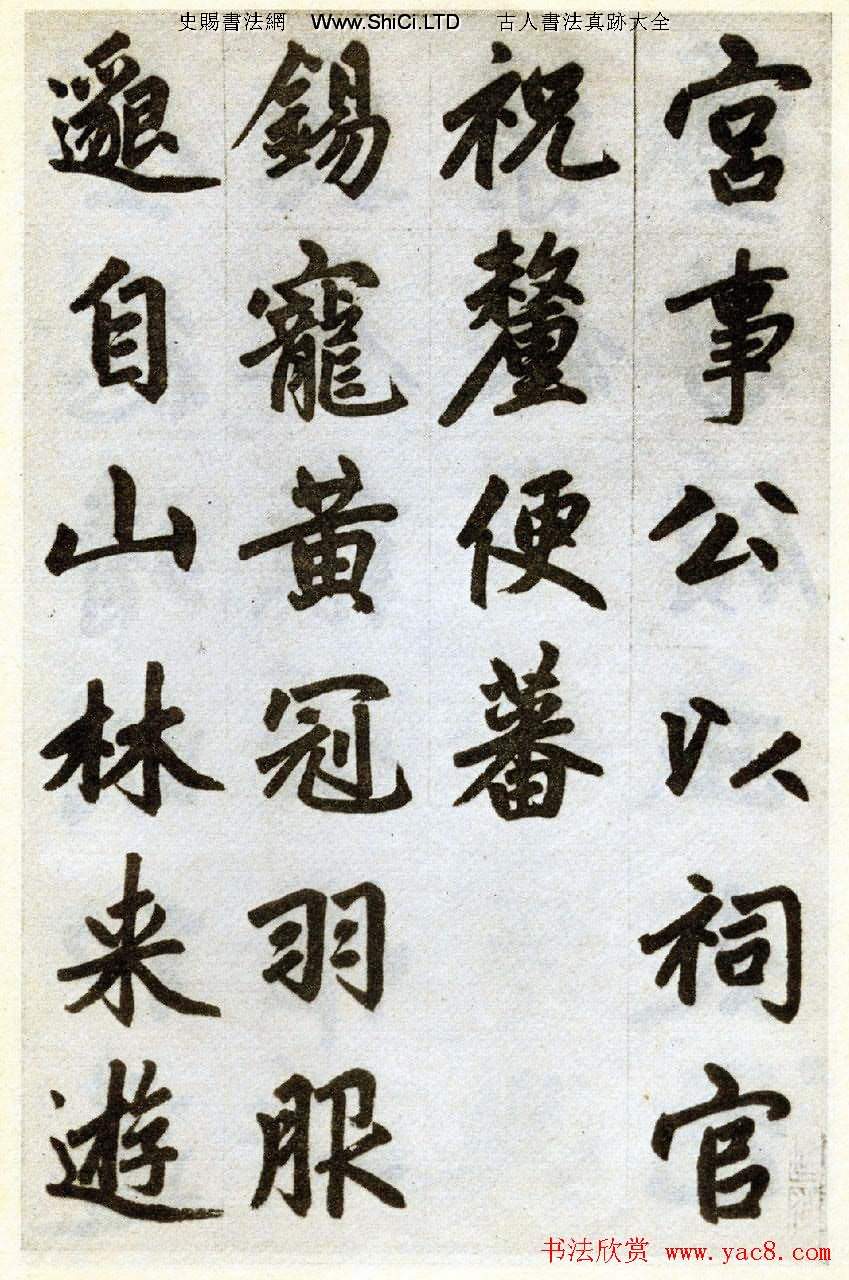 史賜書法網 Www.ShiCi.LTD 古人書法真跡大全
宮事公以祠官
祝釐便蕃
錫寵黄冠羽服
邈自山林来遊
书法欣赏 www.yac8.com